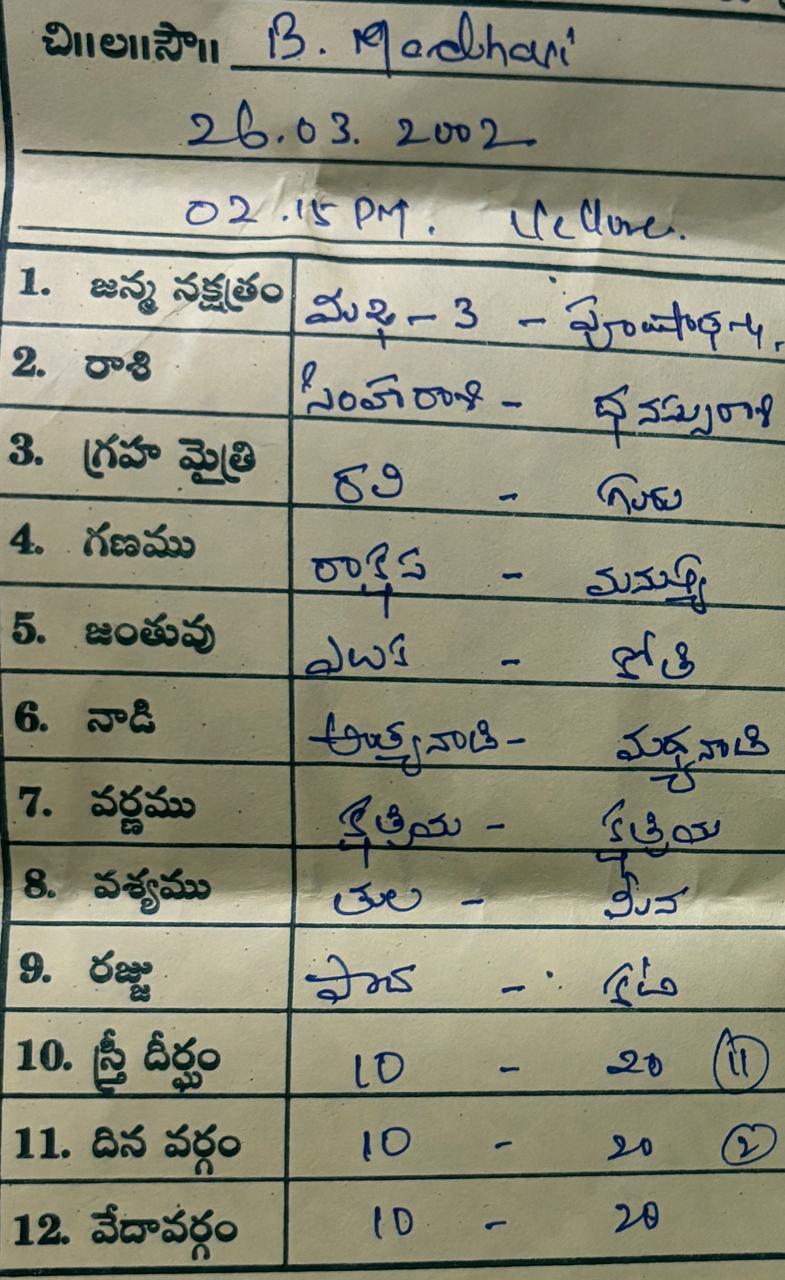 చి॥ల॥సౌ॥ B. Madhari
26.03.2002
02.15 PM. Vellore.
1. జన్మ నక్షత్రం మఖ - 3 - పూర్వాషాఢ-4.
2. రాశి సింహరాశి - ధనస్సురాశి
3. గ్రహ మైత్రి రవి - గురు
4. గణము రాక్షస - మనుష్య
5. జంతువు ఎలుక - కోతి
6. నాడి అంత్యనాడి - మధ్యనాడి
7. వర్ణము క్షత్రియ - క్షత్రియ
8. వశ్యము తుల - మీన
9. రజ్జు పాద - కటి
10. స్త్రీ దీర్ఘం 10 - 20 11
11. దిన వర్గం 10 - 20 2
12. వేదావర్గం 10 - 20